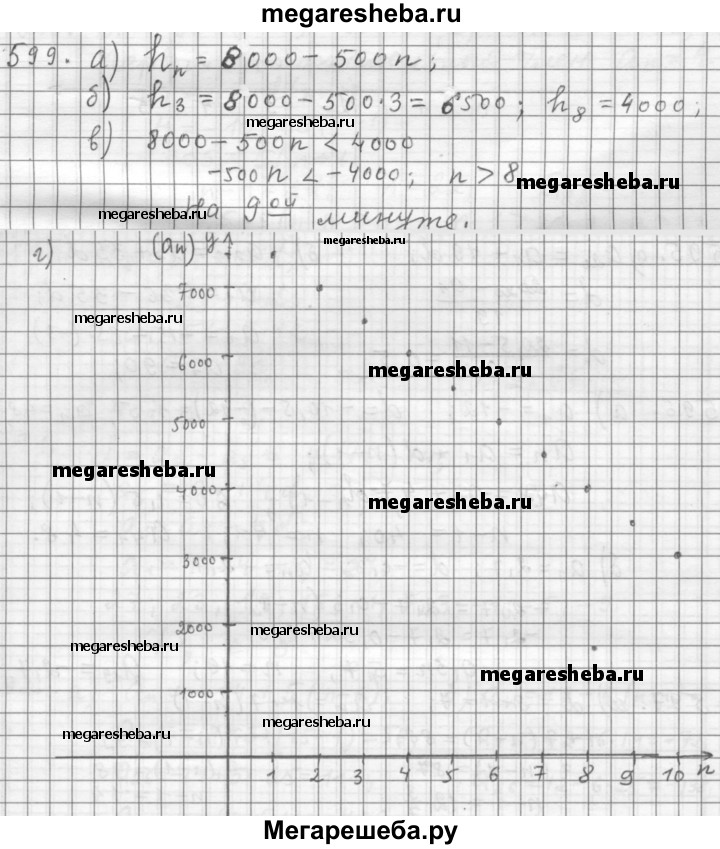 megaresheba.ru
599. а) hₙ = 8000 - 500n;
б) h₃ = 8000 - 500·3 = 6500; h₈ = 4000;
megaresheba.ru
в) 8000 - 500n < 4000
-500n < -4000; n > 8
megaresheba.ru
на 9ой минуте.
megaresheba.ru
г) (aₙ) y
megaresheba.ru
7000
megaresheba.ru
6000
megaresheba.ru
5000
megaresheba.ru
4000
megaresheba.ru
3000
2000
megaresheba.ru
megaresheba.ru
megaresheba.ru
1000
megaresheba.ru
megaresheba.ru
1 2 3 4 5 6 7 8 9 10 n
Мегарешеба.ру